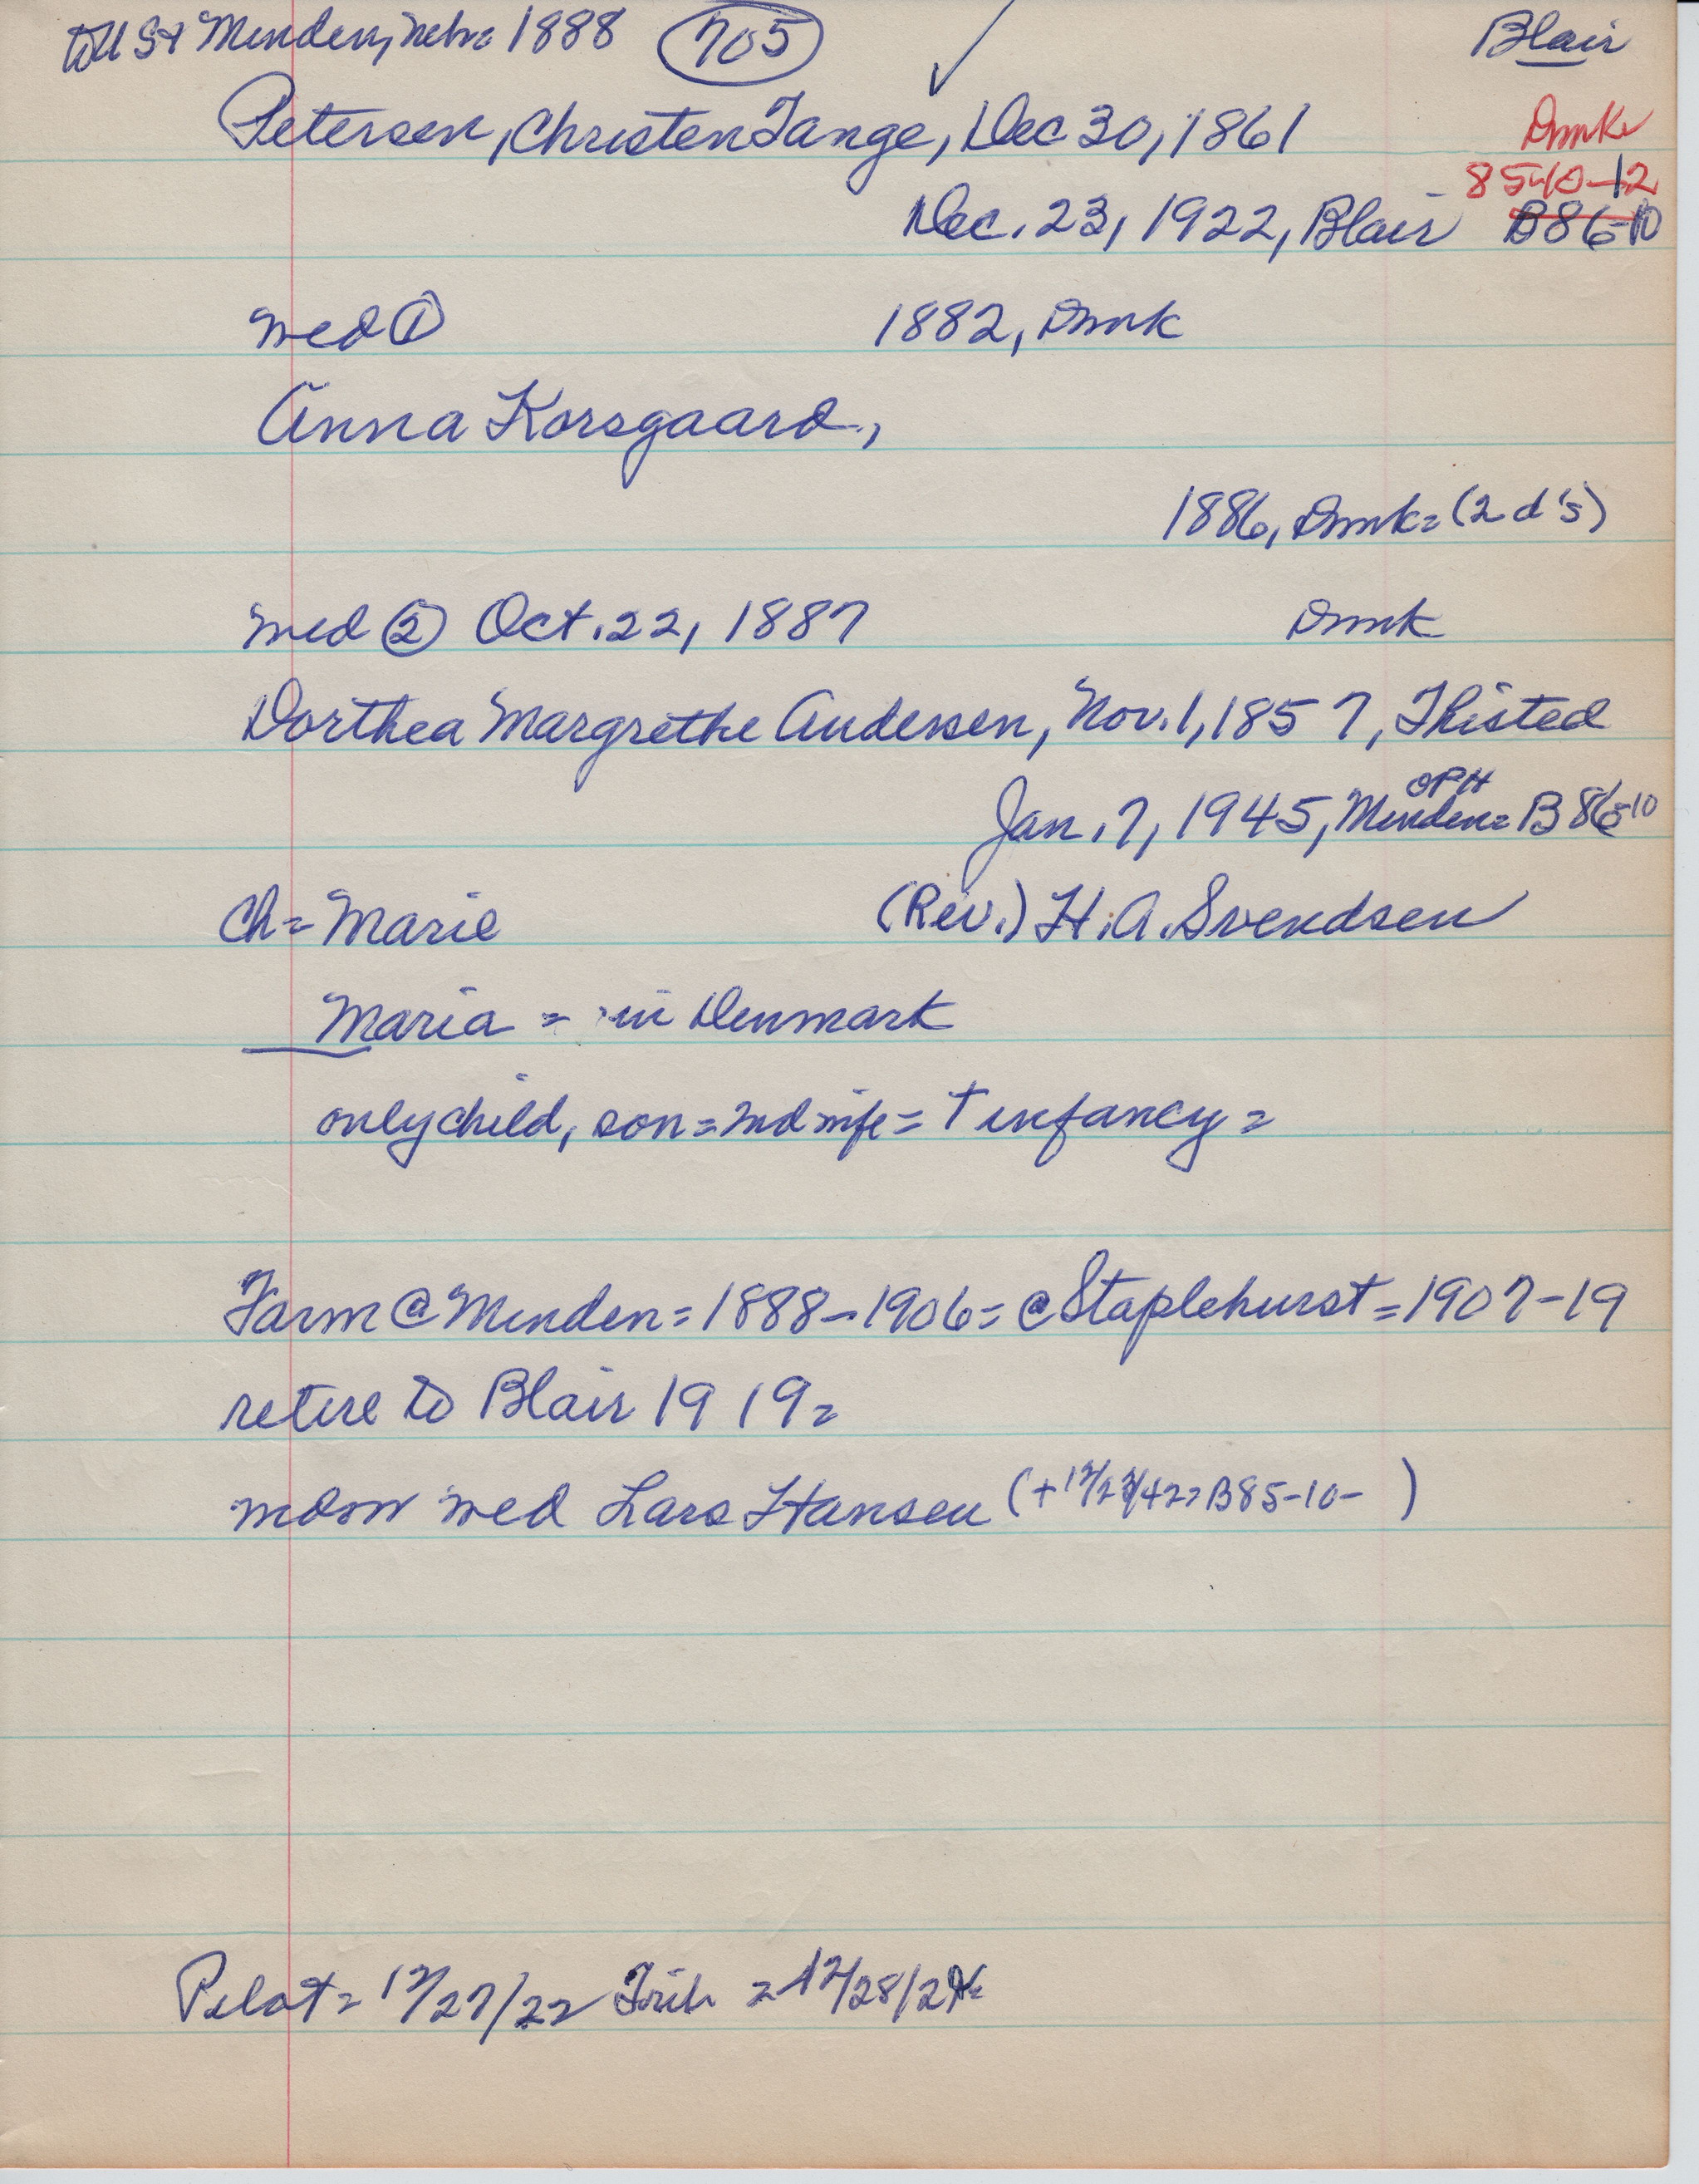 to U S + Minden, Nebr = 1888 (705) ✓ Blair
Petersen, Christen Tange, Dec 30, 1861 Dmk
85-10-12
Dec. 23, 1922, Blair B86-10
med ① 1882, Dmk
Anna Korsgaard,
1886, Dmk = (2 d's)
med ② Oct. 22, 1887 Dmk
Dorthea Margrethe Andersen, Nov. 1, 1857, Thisted
OPH
Jan. 7, 1945, Minden = B 86-10
ch = Marie (Rev.) H. A. Svendsen
Maria = in Denmark
only child, son = 2nd wife = † infancy =
Farm @ Minden = 1888-1906 = @ Staplehurst = 1907-19
retire to Blair 1919 =
wdow med Lars Hansen (+ 12/23/42 = B85-10- )
Pilot = 12/27/22 Trib = 12/28/22